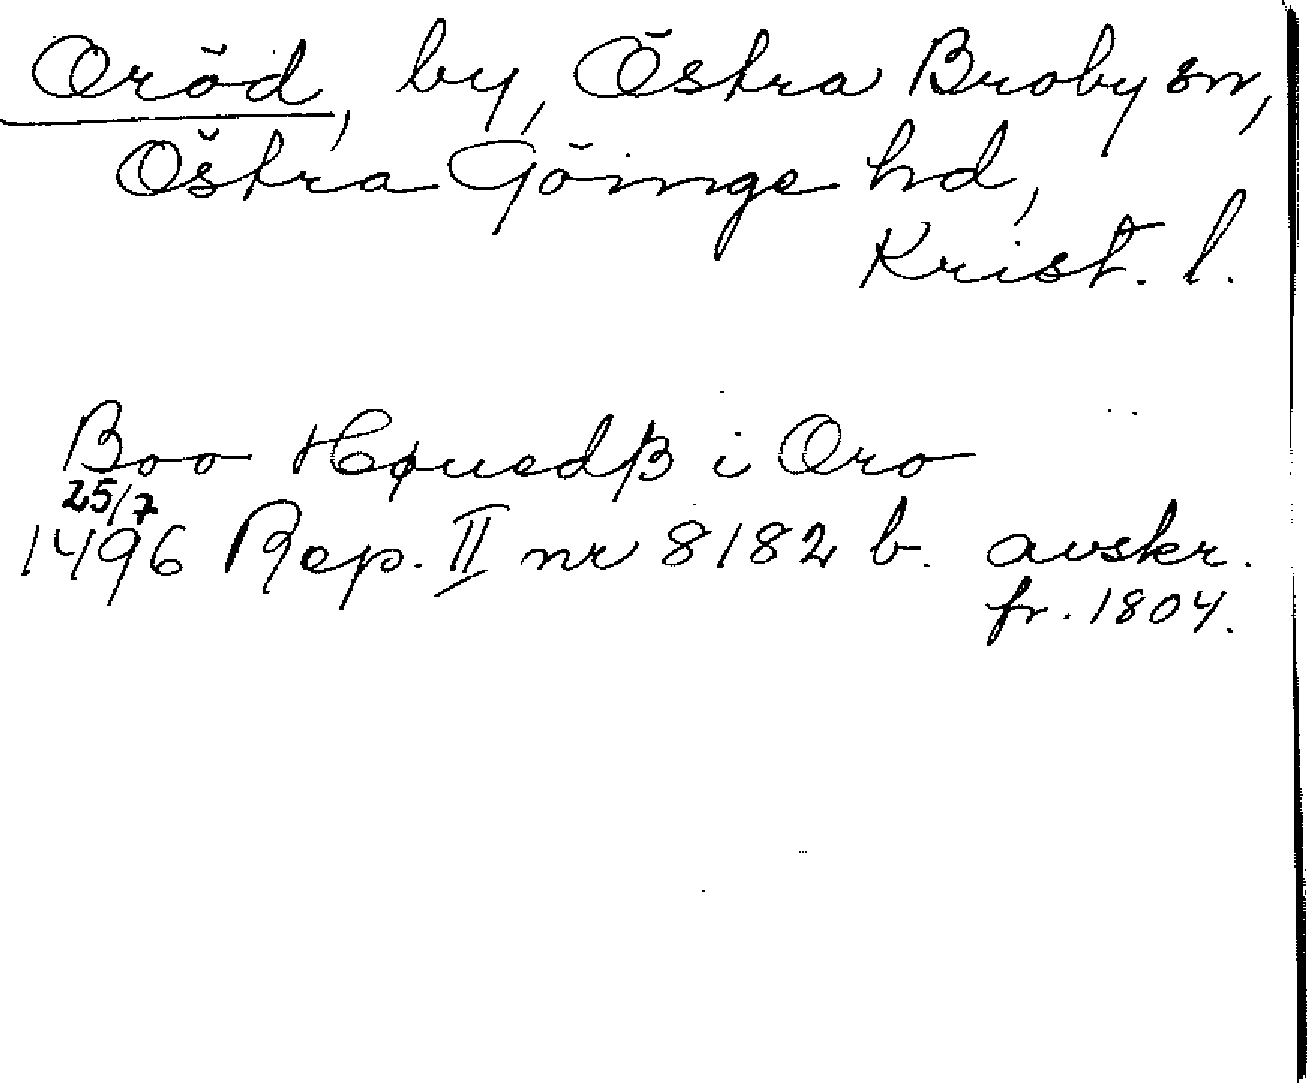 Oröd, by, Östra Broby sn,
Östra Göinge hd,
Krist. l.
Boo Høuedß i Oro
25/7
1496 Rep. II nr 8182 b. avskr.
fr. 1804.